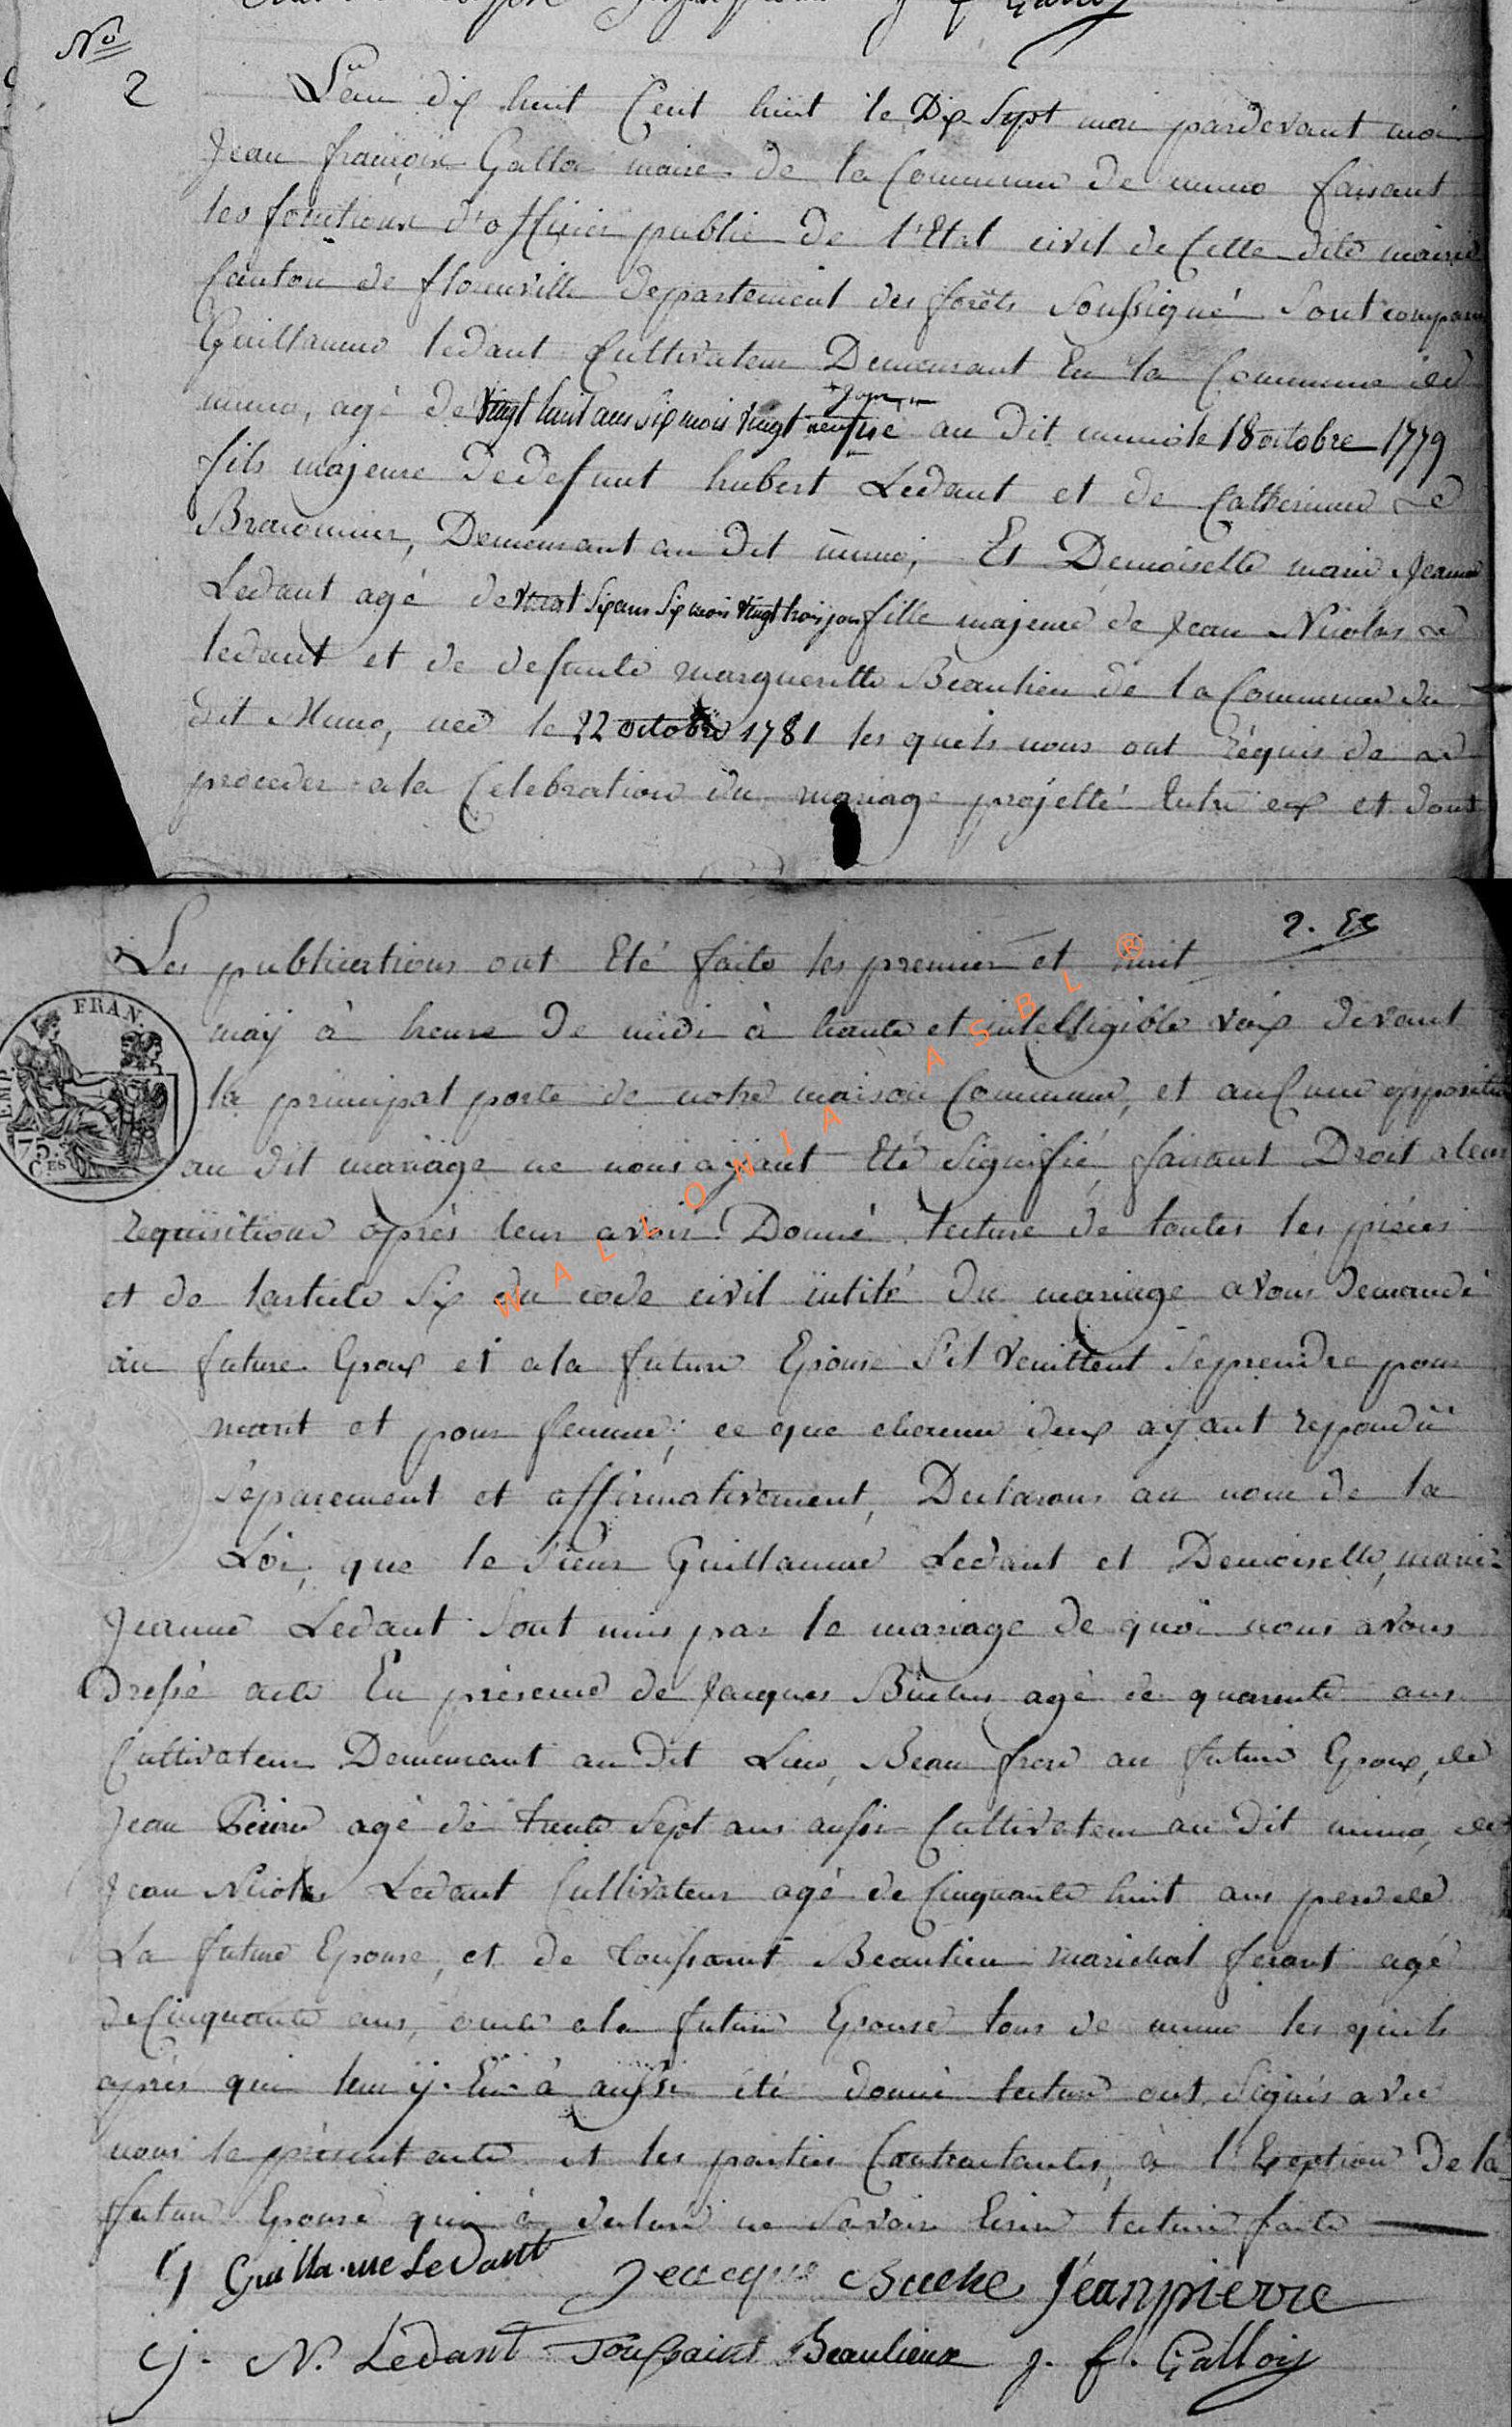 No
2
L'an dix huit Cent huit le Dix Sept mai pardevant moi
Jean françois Gallois maire de la Commune de muno faisant
les fonctions d'officier public de l'Etat civil de Cette dite mairie
Canton de florenville departement des forêts Soussigné Sont comparus
Guillaume ledant Cultivateur Demeurant en la Commune de
muno, agé de vingt huit ans Six mois vingt neuf jours né au dit muno le 18 octobre 1779
fils majeure de defunt hubert Ledant et de Catherinne Le
Braconnier, Demeurant au dit muno, Et Demoiselle marie Jeanne
Ledant agé de vingt Six ans Six mois vingt trois jours fille majeure de Jean Nicolas Le
ledant et de defunte margueritte Beaulieu de la Commune du
dit Muno, neé le 22 octobre 1781 les quels nous ont réquis de
proceder a la Celebration du mariage projetté Entre eux et dont
2. Es
Les publications ont Eté faite les premier et huit
maÿ à heure de midi à haute et intelligible voix devant
la principal porte de notre maison Commune, et auCune opposition
au dit mariage ne nous aÿant Eté Signifié, faisant Droit a leur
requisitions après leur avoir Donné lecture de toutes les piéces
et de larticle Six du code civil intité du mariage avons demandé
au future Epoux et a la future Epouse S'il veuillent Se prendre pour
mari et pour femme; ce que chacun deux aÿant repondü
séparement et affirmativement, Declarons au nom de la
Loi, que le Sieur Guillaume Ledant et Demoiselle marie
Jeanne Ledant Sont unis par le mariage de quoi nous avons
Dressé acte En présence de Jacques Buche agé de quarente ans
Cultivateur Demeurant au dit Lieu, Beau frere au future Epoux, de
Jean Pierre agé de trente Sept ans aussi Cultivateur au dit muno, de
Jean Nicolas Ledant Cultivateur agé de Cinquante huit ans pere de
La future Epouse, et de Toussaint Beaulieu marichal ferant agé
de Cinquante ans, oncle a la future Epouse tous de muno les quels
après qui leur ÿ En à aussi été donné lecture ont Signés avec
nous le présent acte et les parties Contractantes, à l'Exeption De la
future Epouse qui à declaré ne Savoir Ecrire lecture faite
G Guillaume Ledant Jeacque Buche Jeanpierre
J. N. Ledant Toussaint Beaulieux J. f. Gallois
FRAN.
EMP.
75
CES
WALLONIA ASBL ®